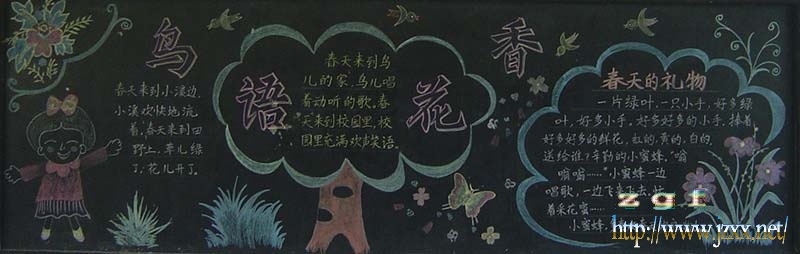 鸟
语
花
香
春天来到小溪边,
小溪欢快地流
着。春天来到田
野上,草儿绿
了,花儿开了。
春天来到鸟
儿的家,鸟儿唱
着动听的歌。春
天来到校园里,校
园里充满欢声笑语。
春天的礼物
一片绿叶,一只小手,好多绿
叶,好多小手,好多好多的小手,捧着
好多好多的鲜花,红的,黄的,白的,
送给谁?辛勤的小蜜蜂。"嗡
嗡嗡……"小蜜蜂一边
唱歌,一边飞来飞去,忙
着采花蜜……
小蜜蜂,
zgf
http://www.jzxx.net/